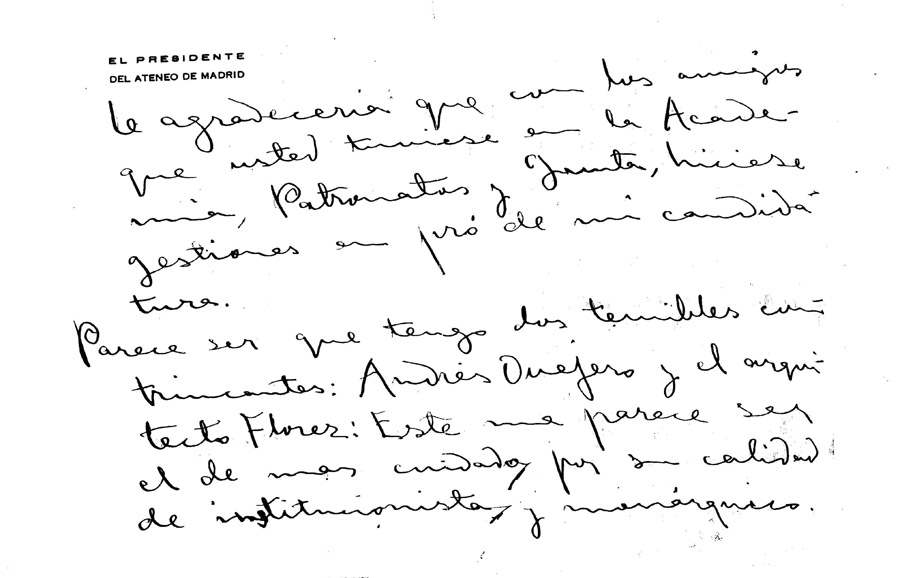 EL PRESIDENTE
DEL ATENEO DE MADRID
Le agradeceria que con los amigos
que usted tuviese en la Acade-
mia, Patronatos y Junta, hiciese
gestiones en pró de mi candida-
tura.
Parece ser que tengo dos temibles con-
trincantes: Andrés Ovejero y el arqui-
tecto Florez: Este me parece ser
el de mas cuidado, por su calidad
de institucionista, y monárquico.